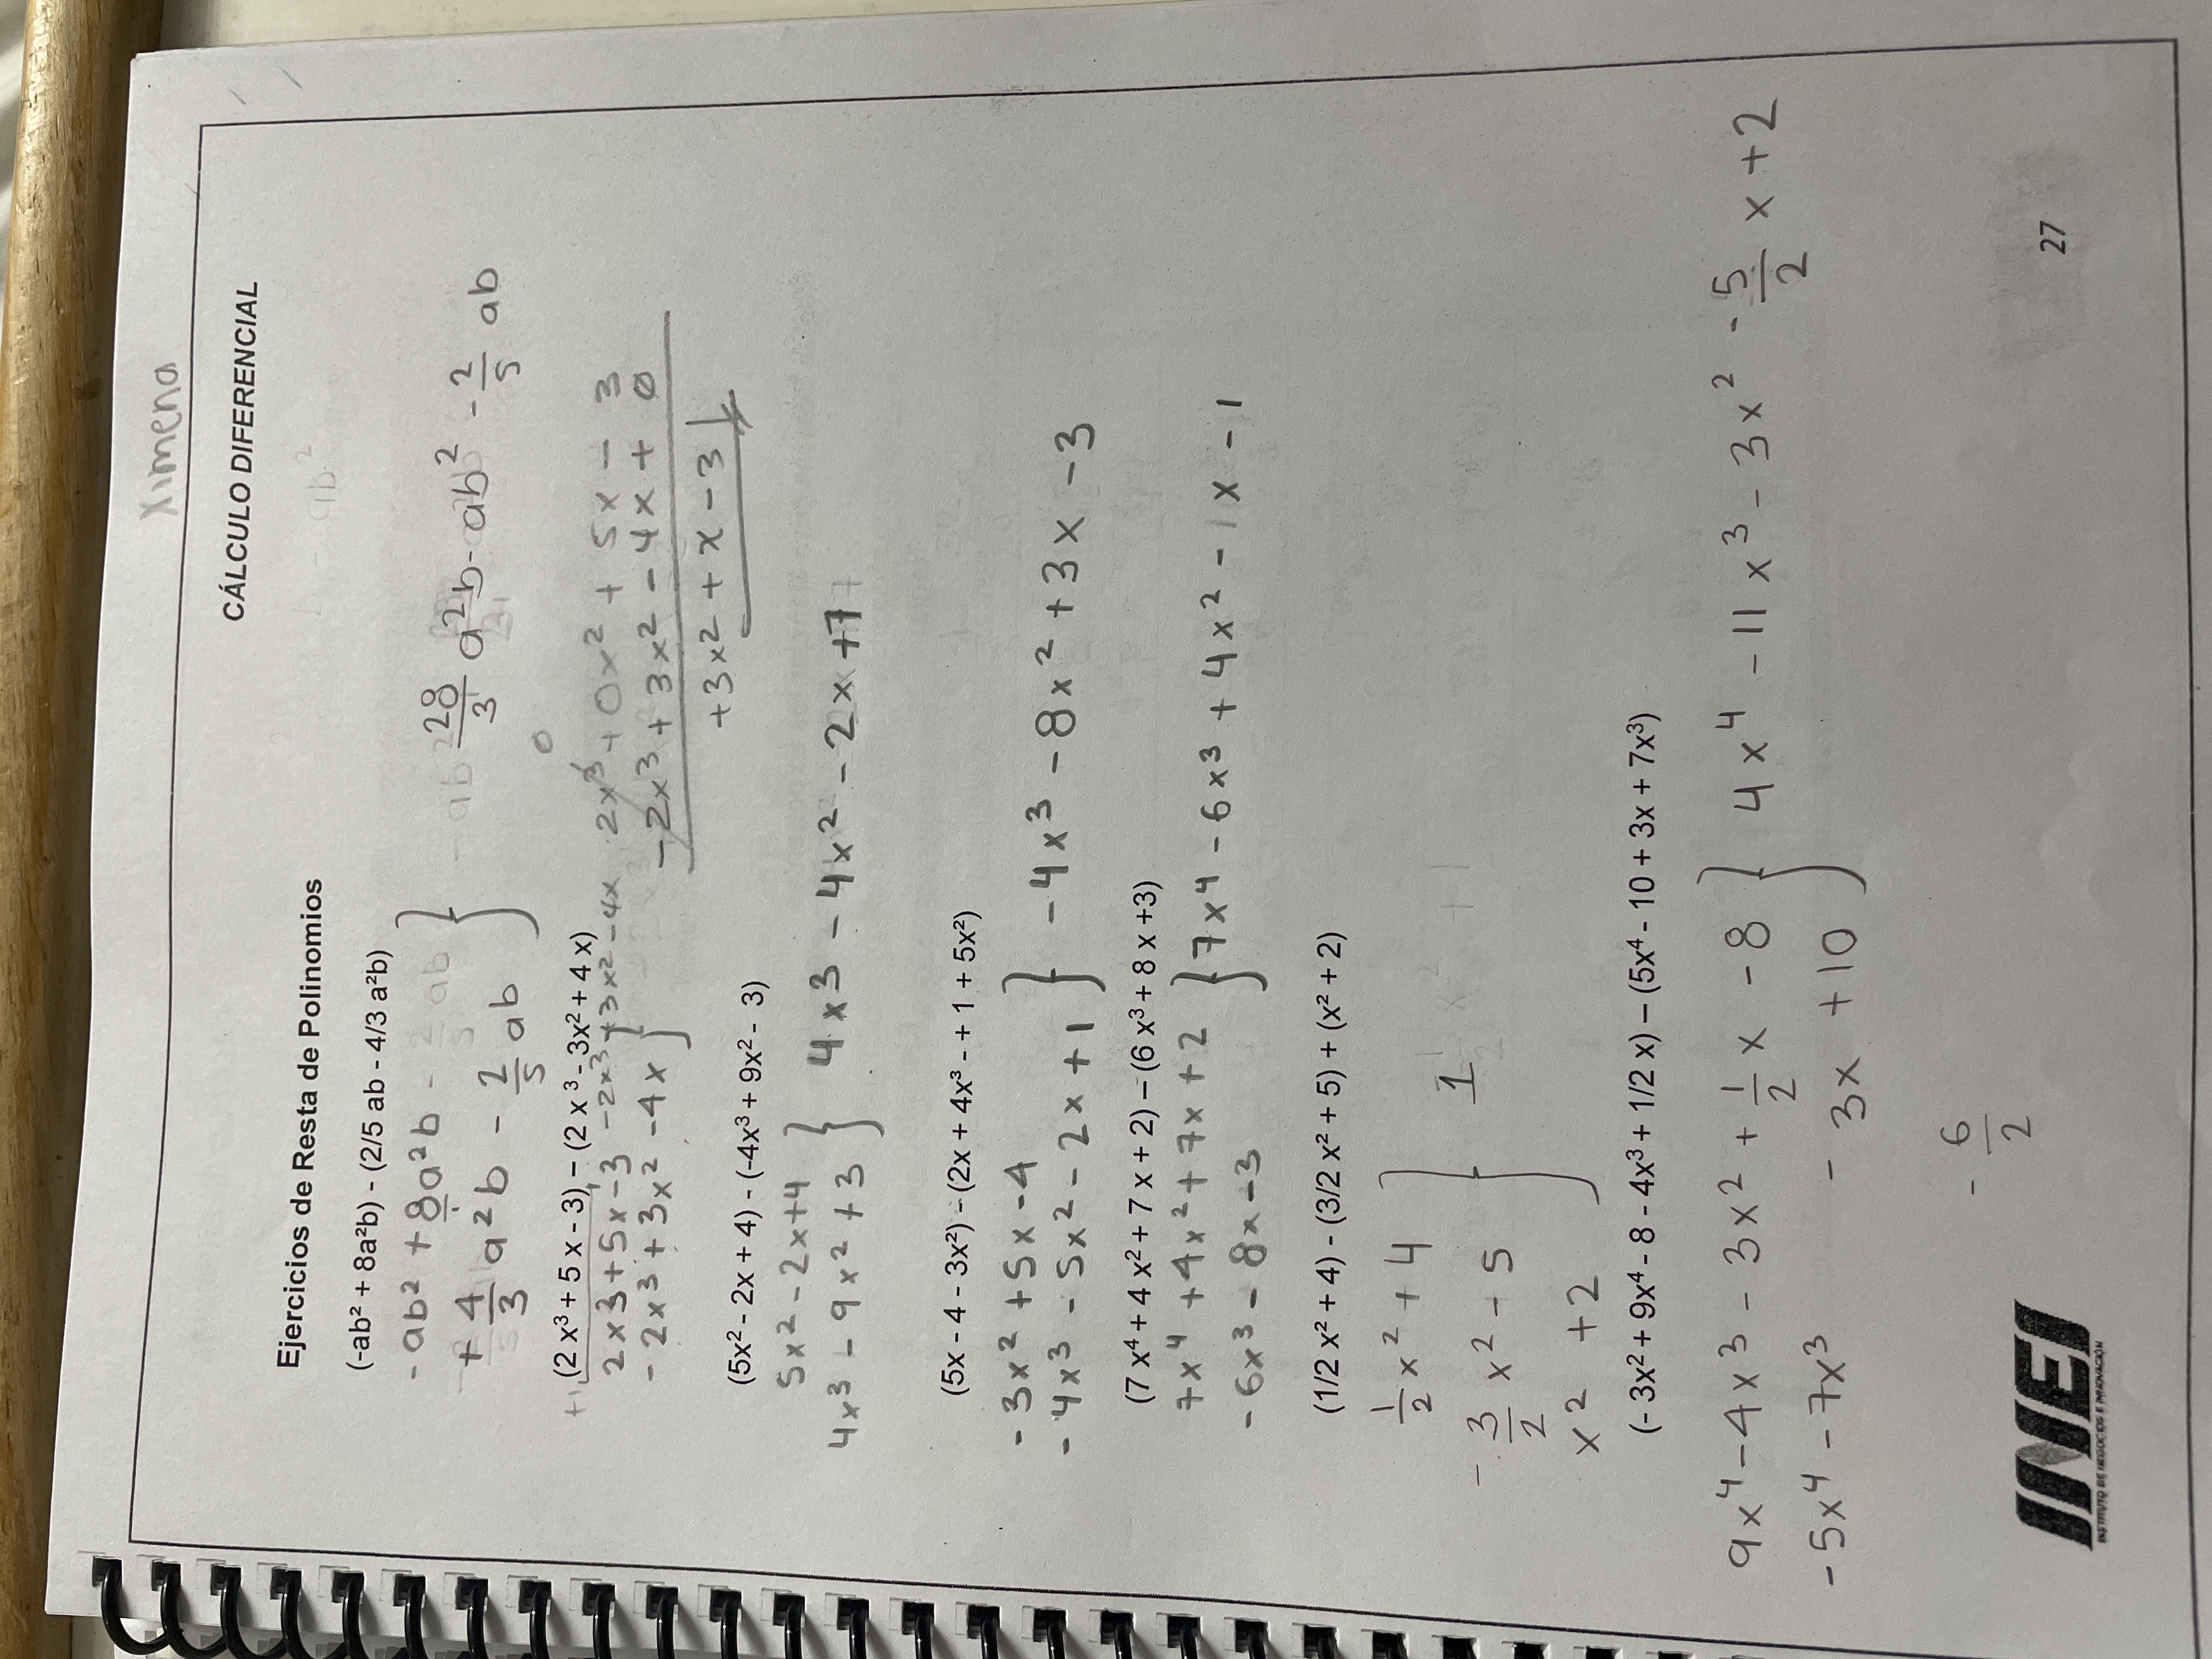 Ximena
CÁLCULO DIFERENCIAL
Ejercicios de Resta de Polinomios
(-ab² + 8a²b) - (2/5 ab - 4/3 a²b)
-ab² + 8a²b - 2/5 ab
+ 4/3 a²b - 2/5 ab } 28/3 a²b - ab² - 2/5 ab
(2 x³ + 5 x - 3) - (2 x³ - 3x² + 4 x)
2x3 + 5x - 3 - 2x³ + 3x² - 4x
- 2x3 + 3x² - 4x }
2x³ + 0x² + 5x - 3
- 2x³ + 3x² - 4x + 0
+3x² + x - 3
(5x² - 2x + 4) - (-4x³ + 9x² - 3)
5x² - 2x + 4
4x³ - 9x² + 3 } 4x3 - 4x² - 2x + 7
(5x - 4 - 3x²) - (2x + 4x³ - + 1 + 5x²)
- 3x² + 5x - 4
- 4x3 - 5x² - 2x + 1 } - 4x³ - 8x² + 3x - 3
(7 x⁴ + 4 x² + 7 x + 2) – (6 x³ + 8 x +3)
7x⁴ + 4x² + 7x + 2
- 6x3 - 8x - 3 } 7x⁴ - 6x³ + 4x² - 1x - 1
(1/2 x² + 4) - (3/2 x² + 5) + (x² + 2)
1/2 x² + 4
- 3/2 x² - 5
x² + 2 } 1
(- 3x² + 9x⁴ - 8 - 4x³ + 1/2 x) – (5x⁴ - 10 + 3x + 7x³)
9x⁴ - 4x3 - 3x² + 1/2 x - 8
- 5x⁴ - 7x³ - 3x + 10 } 4x⁴ - 11x³ - 3x² - 5/2 x + 2
- 6/2
INEI
INSTITUTO DE NEGOCIOS E INNOVACIÓN
27